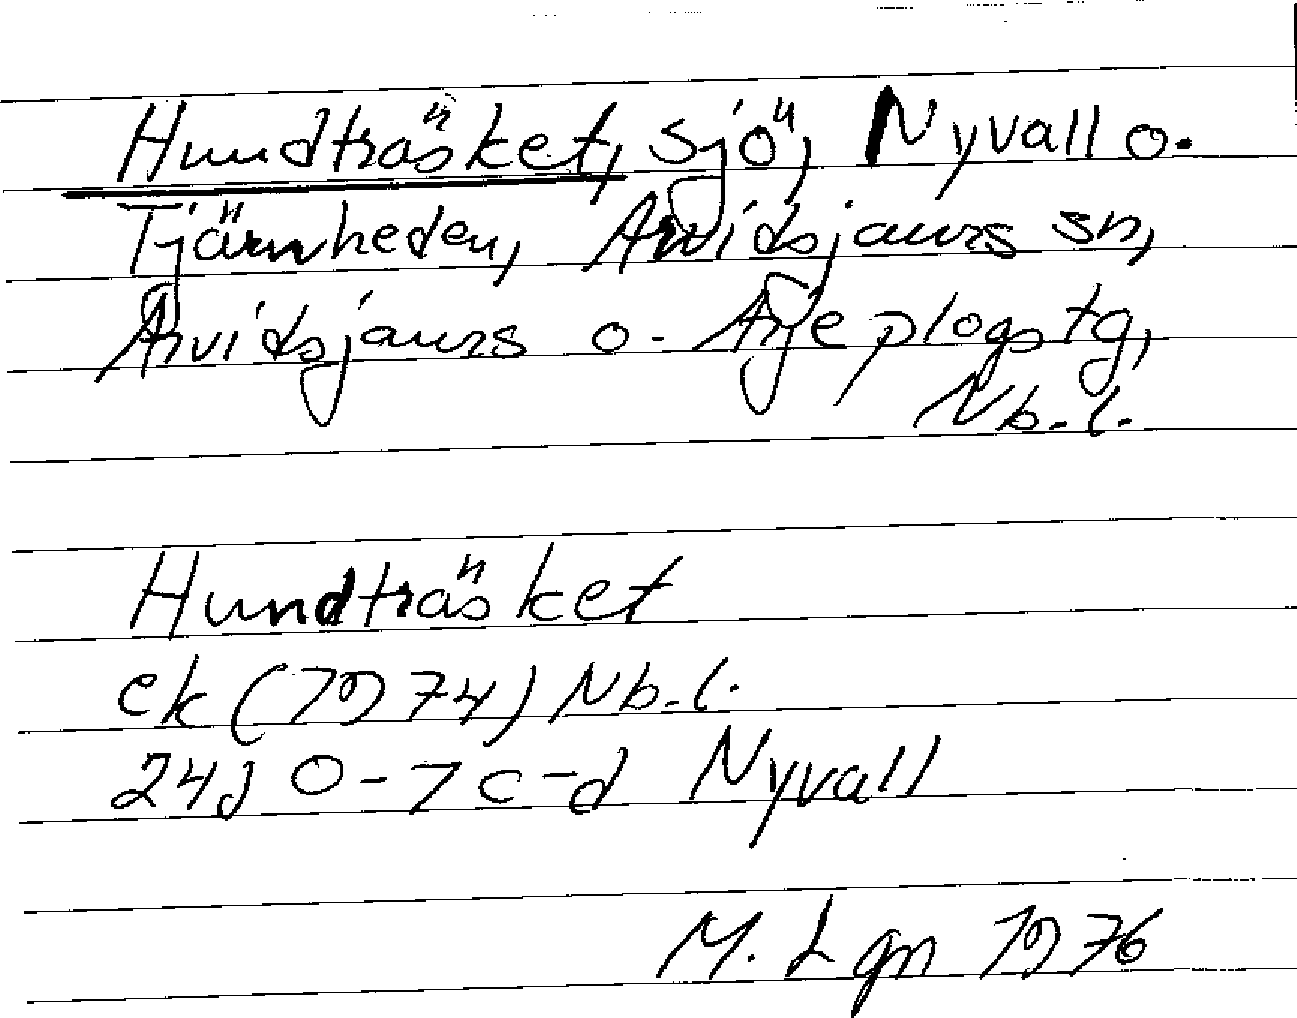 Hundträsket, sjö, Nyvall o.
Tjärnheden, Arvidsjaurs sn,
Arvidsjaurs o. Arjeplogs tg,
Nb.l.
Hundträsket
ek (1974) Nb.l.
24J 0-1 c-d Nyvall
M. Lgn 1976